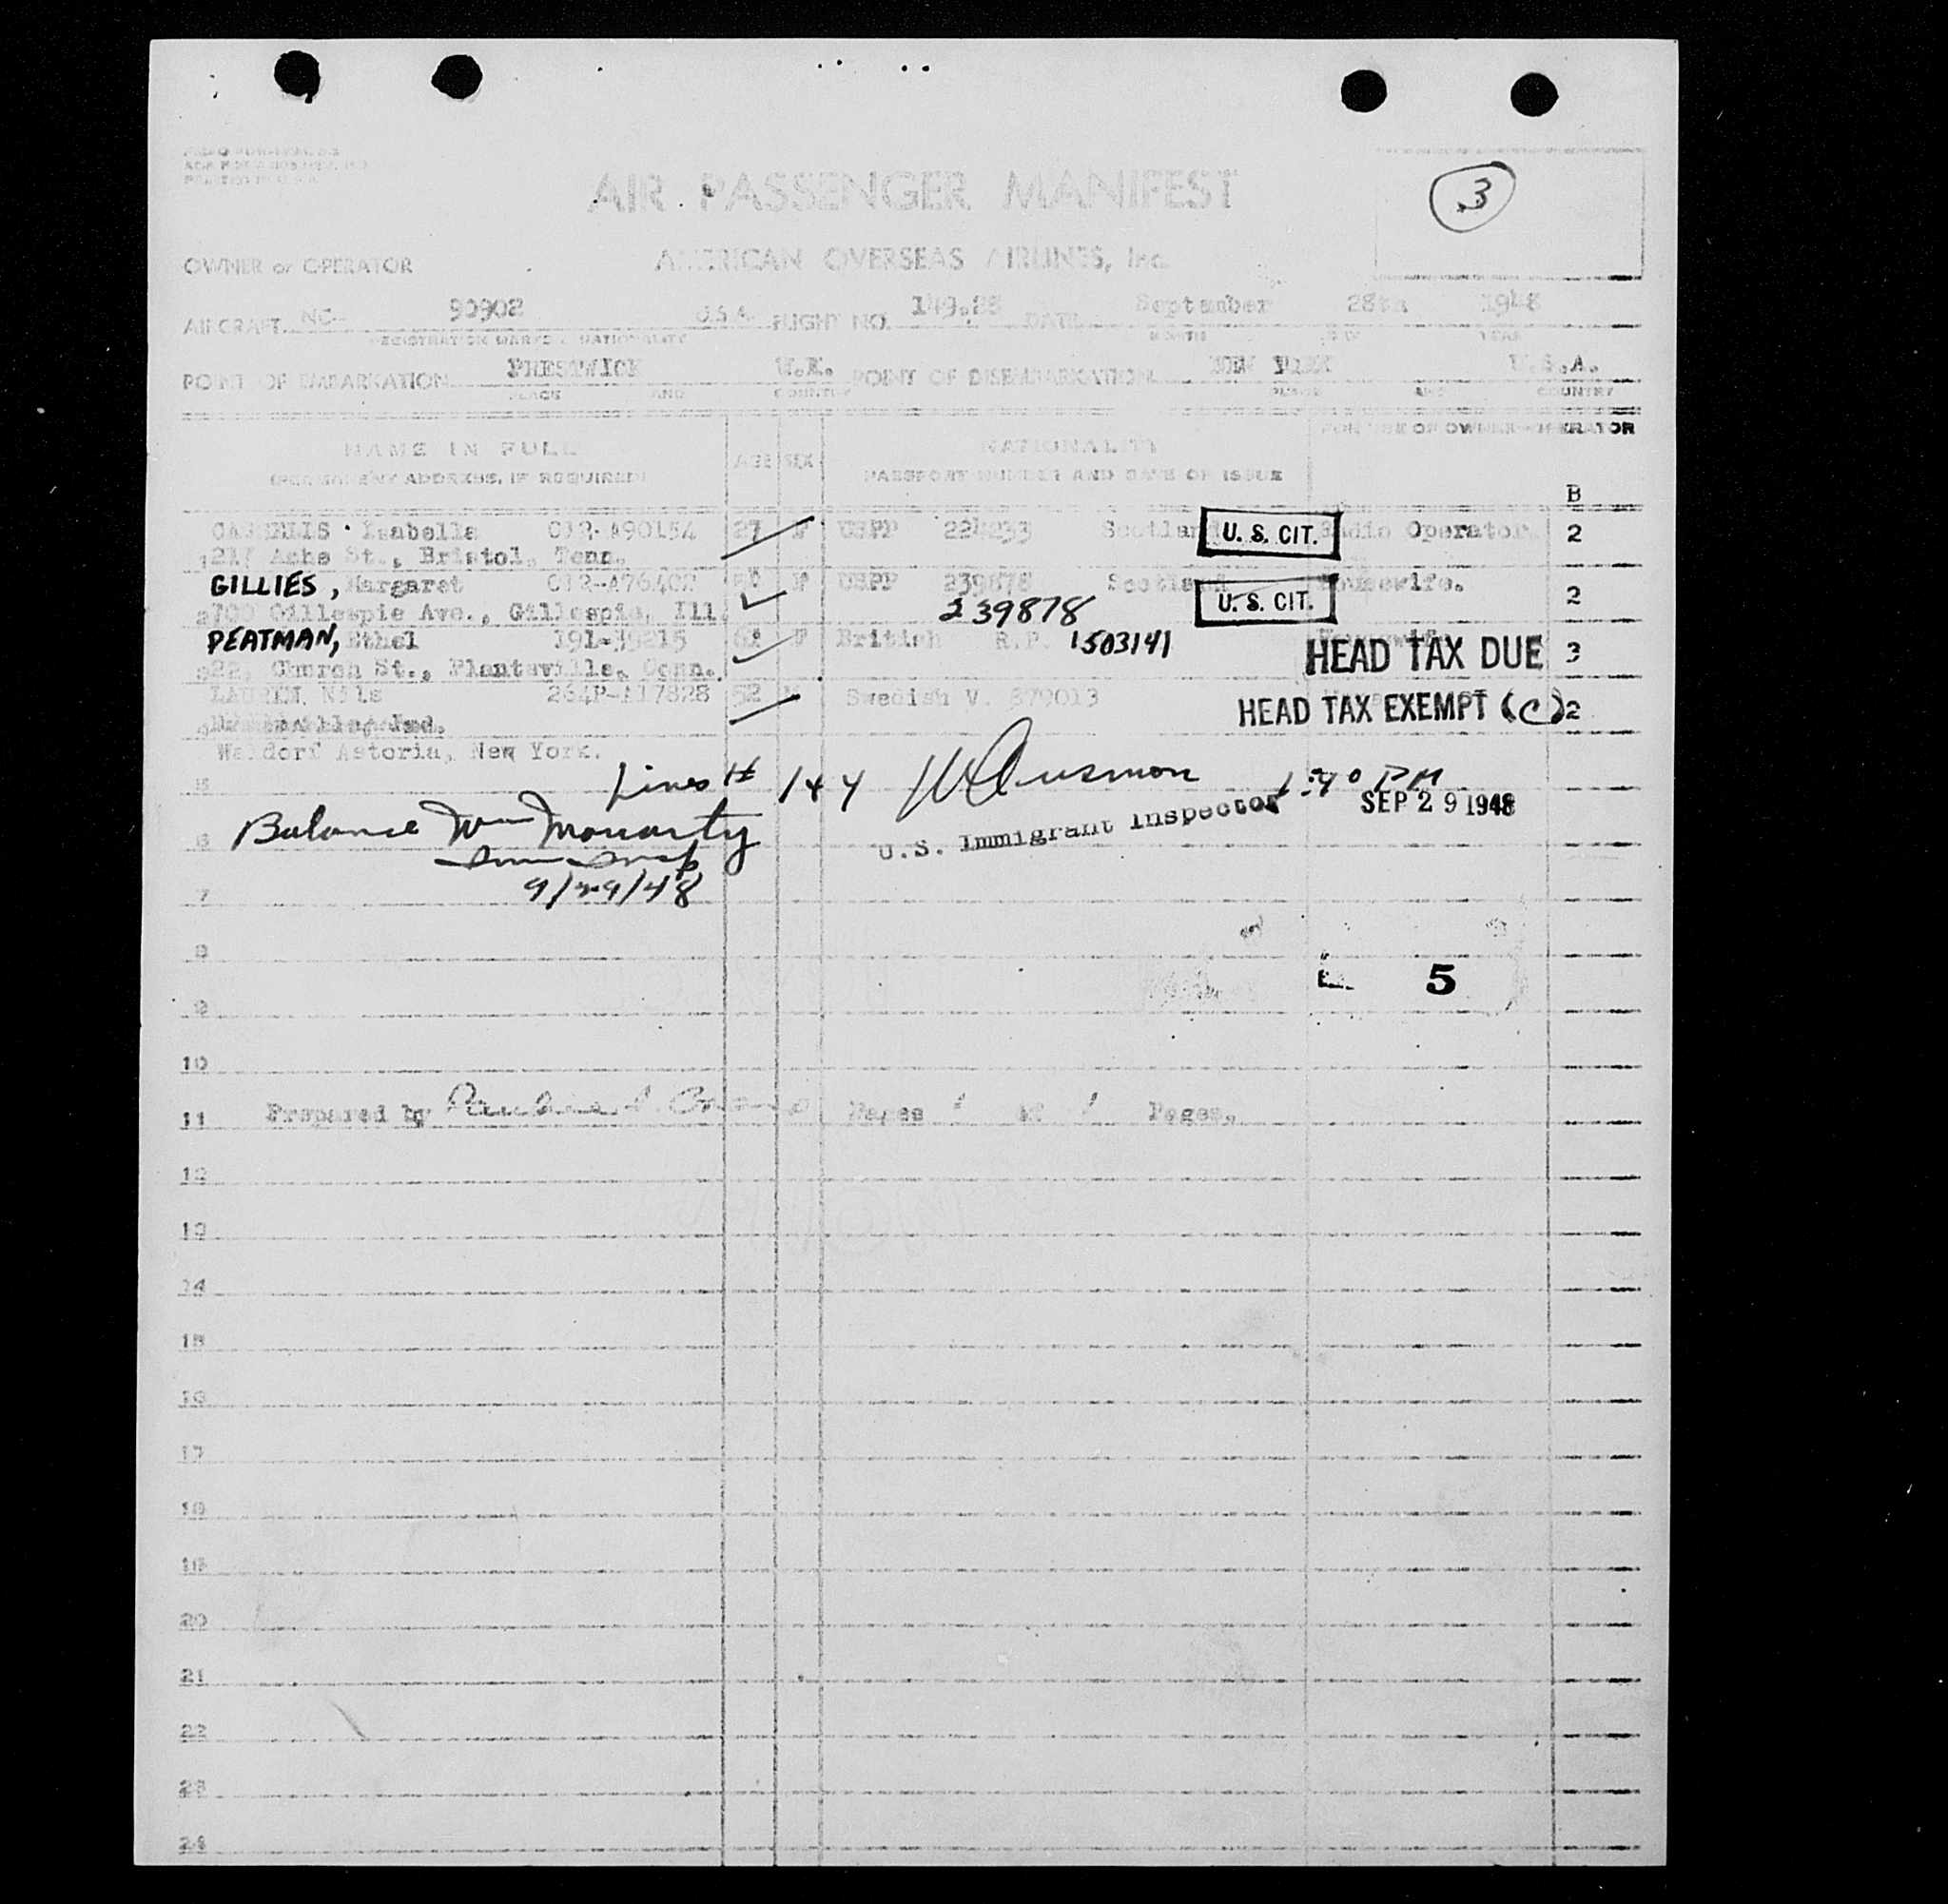 3
AIR PASSENGER MANIFEST
OWNER or OPERATOR AMERICAN OVERSEAS AIRLINES, Inc.
AIRCRAFT NC- 90902 U.S.A. FLIGHT NO. 149.28 DATE September 28th 1948
REGISTRATION MARKS NATIONALITY MONTH DAY YEAR
POINT OF EMBARKATION PRESTWICK U.K. POINT OF DISEMBARKATION NEW U.S.A.
PLACE AND COUNTRY PLACE AND COUNTRY
NAME IN FULL AGE SEX NATIONALITY FOR USE OF OWNER OPERATOR
(PERMANENT ADDRESS, IF REQUIRED) PASSPORT NUMBER AND DATE OF ISSUE
B
Isabella 27 F USPP Scotland U. S. CIT. Radio Operator. 2
Ashe St., Bristol, Tenn.
GILLIES, Margaret F USPP 239878 Scotland U. S. CIT. Housewife. 2
2 Gillespie Ave., Gillespie, Ill. 239878
PEATMAN, Ethel 191-39215 F British R.P. 1503141 HEAD TAX DUE 3
3 22, Church St., Plantsville, Conn.
Nils 264P-A17828 52 Swedish V. 879013 HEAD TAX EXEMPT (C) 2
Waldorf Astoria, New York.
5 Lines # 1+4 PM
SEP 29 1948
6 Balance Wm Moriarty U.S. Immigrant Inspector
9/29/48
7
8
5
9
10
11 Prepared by Pages 1 1 Pages.
12
13
14
15
16
17
18
19
20
21
22
23
24